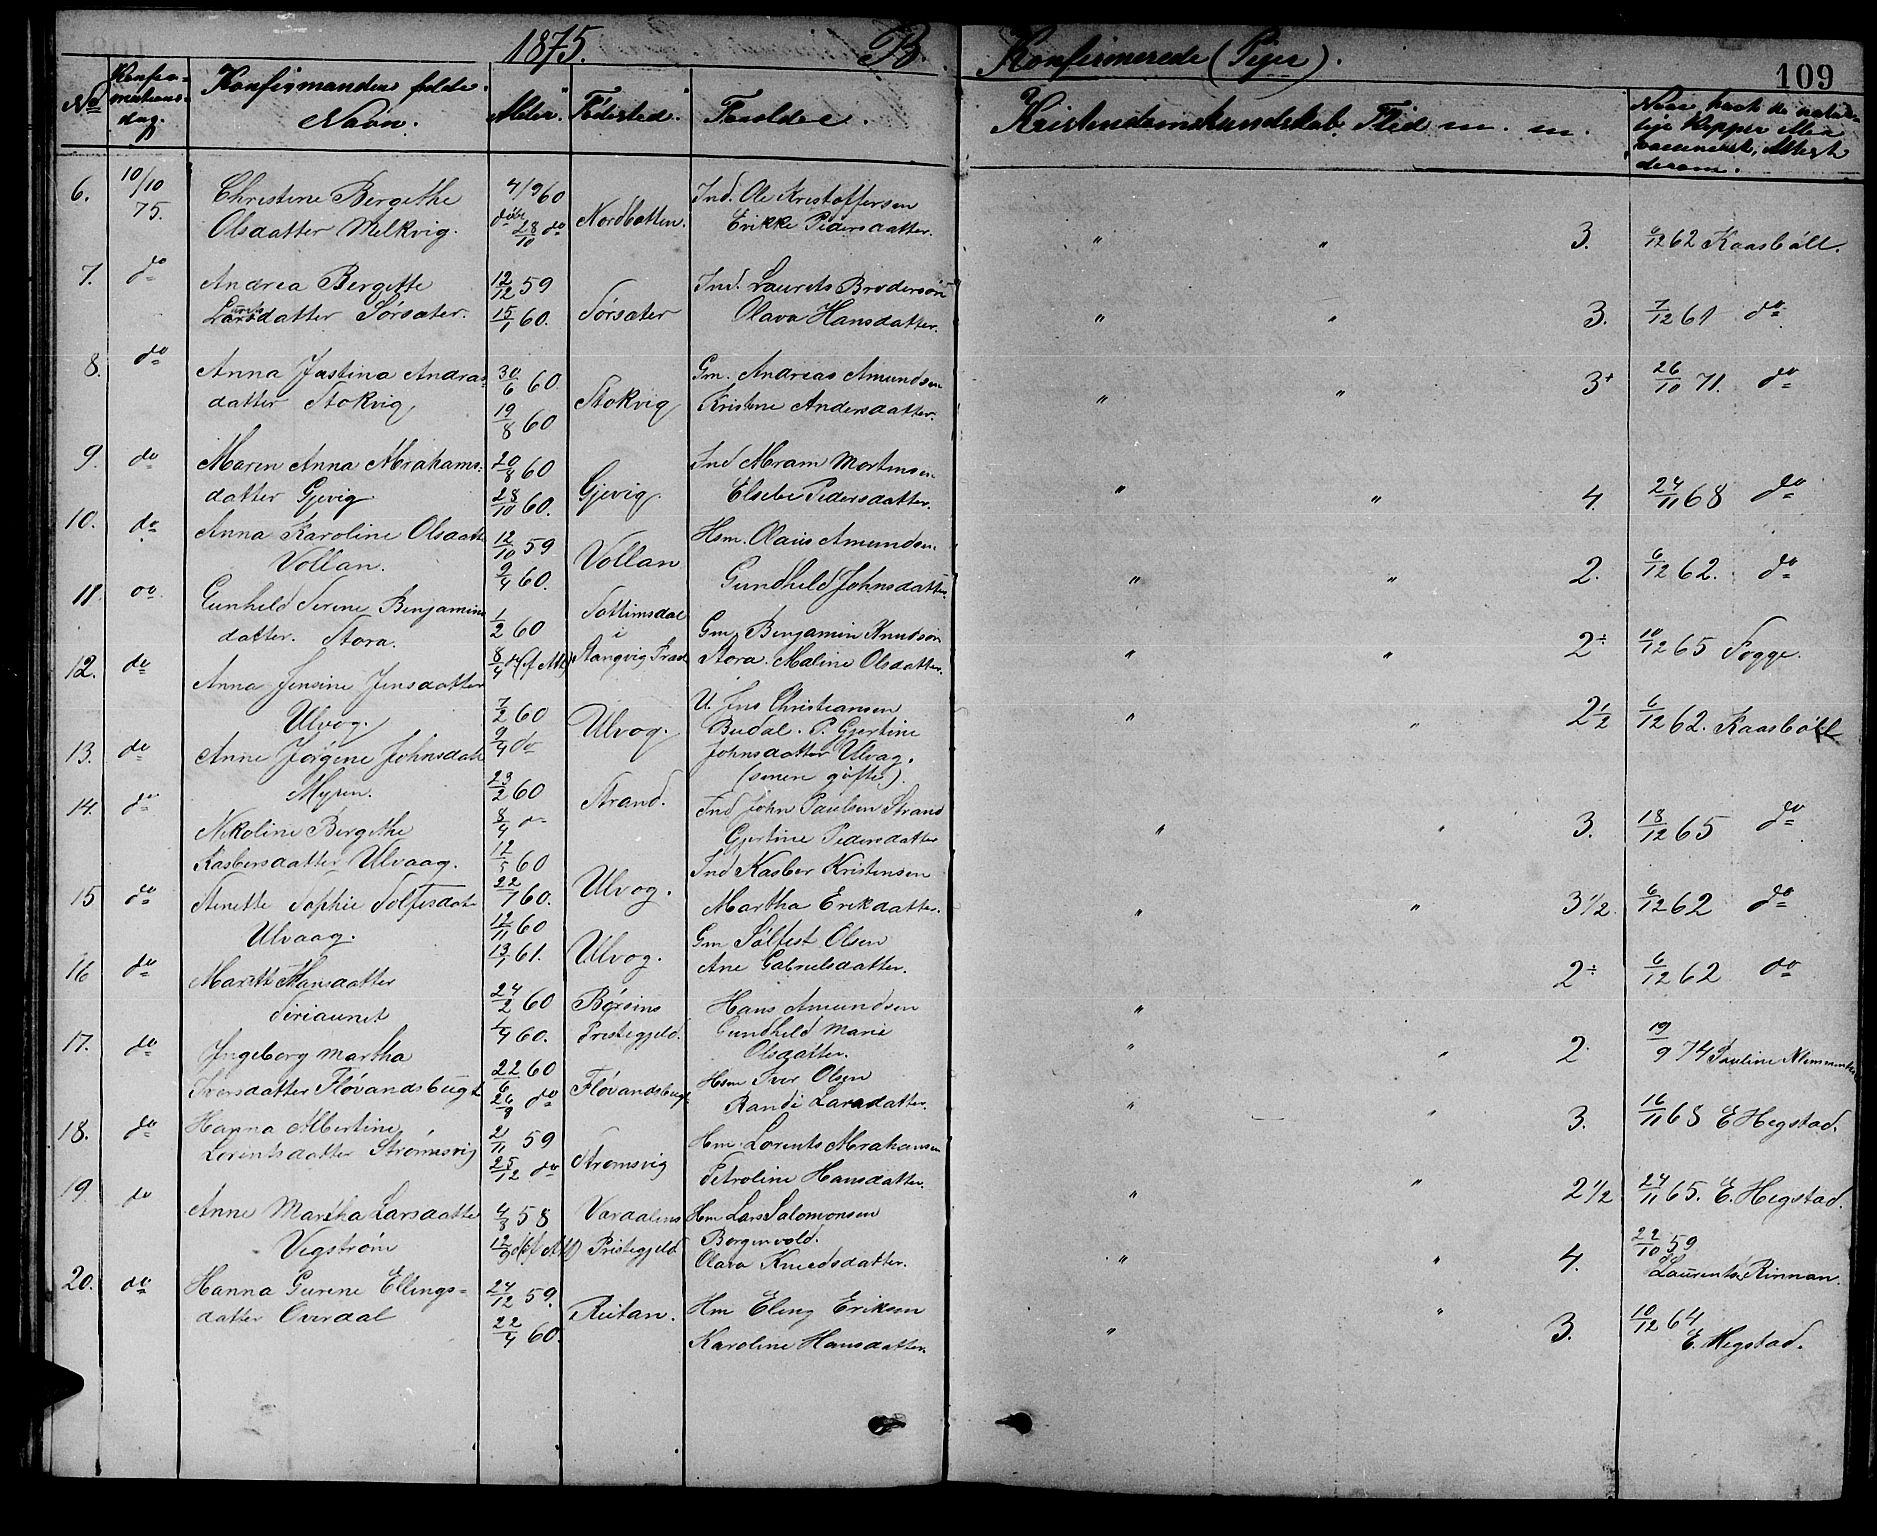 1875. B. Konfirmerede (Piger).
109
No Konfirmationsdag. Konfirmandens fulde Navn. Alder. Fødested. Forældre. Kristendomskundskab, Flid m. m. Naar havt de naturlige Kopper eller vaccineret, Attest derom.
6. 10/10 75. Christine Bergithe 4/9 60 Nordbotten. Ind. Ole Kristoffersen
Olsdatter Melkvig. døbt 28/10 do Erikke Pedersdatter. " " 3. 6/12 62 Kaasbøll.
7. do Andrea Bergitte 12/12 59 Sørsæter Ind. Laurits Brodersøn
Lauritsdatter Sørsæter. 15/1 60. Olava Hansdatter. " " 3. 7/12 61 do
8. do Anna Justina Andreas- 30/6 60. Stokvig Gm. Andreas Amundsen
datter Stokvig 19/8 60 Kristine Andersdatter. " " 3+ 26/10 71. do
9. do Maren Anna Abrahams- 20/8 60 Gjevig. Ind Abram Mortensen
datter Gjevig 28/10 60. Elsebe Pedersdatter. " " 4. 24/11 68 do
10. do Anna Karoline Olsdatte 12/10 59 Vollan Hsm. Olaus Amundsen.
Vollan. 9/4 60. Gundheld Johnsdatter. " " 2. 6/12 62. do
11. do Gunheld Serine Benjamins 1/2 60 i Stangvig Præst Gm. Benjamin Knudsøn
datter. Stora. 8/4 (f. Att.) Stora. Maline Olsdatter. " " 2÷ 10/12 65 Fogge.
12. do Anna Jensine Jensdatter 7/2 60 Ulvog. U. Jens Christiansen
Ulvog. 9/4 do Budal. P. Gjertine
Johnsdatter Ulvag. " " 2 1/2 6/12 62. Kaasbøll
(senere gifte).
13. do Anne Jørgine Johnsdatt 23/2 60 Strand. Ind John Paulsen Strand
Myren. 8/4 do Gjertine Pedersdatter " " 3. 18/12 65 do
14. do Nikoline Bergithe 12/5 60 Ulvog. Ind Kasber Kristensen
Kasbersdatter Ulvaag. 22/7 60. Martha Erikdatter. " " 3 1/2. 6/12 62 do
15 do Stenette Sophie Solfesdatt 12/11 60 Ulvog. Gm Sølfest Olsen
Ulvaag. 13/1 61. Ane Gabrielsdatter. 2÷ 6/12 62 do
16 do Marith Hansdatter 24/2 60 Børsens Hans Amundsen
Siriaunet 1/4 60. Præstegjeld. Gundheld Marie
Olsdatter. " " 2 19/9 74 Pauline
17. do Ingeborg Martha 22/6 60 Fløvandsbugt Hsm Iver Olsen
Iversdatter Fløvandsbugt 26/8 do Randi Larsdatter. " " 3. 16/11 68 E Hegstad.
18. do Hanna Albertine 2/11 59 Strømsvig Hm. Lorents Abrahamsen
Lorentsdatter Strømsvig 25/12 do Petroline Hansdatter. " " 2 1/2 24/11 65. E. Hegstad.
19. do Anne Martha Larsdatte 4/3 58 Værdalens Hm Lars Salomonsen
Vegstrøm 12/9 do (f. Att) Præstegjeld. Borgenvold.
Olava Knudsdatter. " " 4. 22/10 59 Laurents Rinnan.
20. do Hanna Gurene Ellings- 24/12 59. Rutan. Hm Eling Eriksen
datter Overdal 22/4 60. Karoline Hansdatter. " " 3. 10/12 64 E. Hegstad.